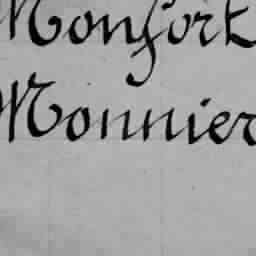 Monfort
Monnier